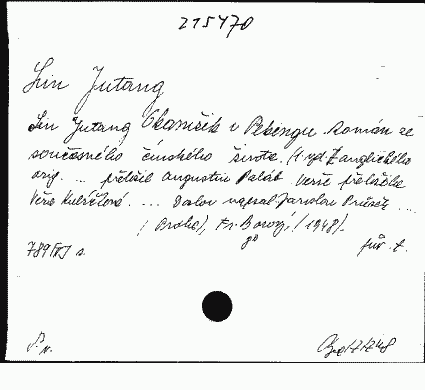 215470
Lin Jutang
Lin Jutang Okamžik v Pekingu Román ze
současného čínského života. (1. vyd. Z anglického
orig. ... přeložil Augustin Palát. Verše přeložila
Věra Kubíčková. ... Doslov napsal Jaroslav Průšek ...
(Praha), Fr. Borový, (1948).
8°
789 s.
pův. t.